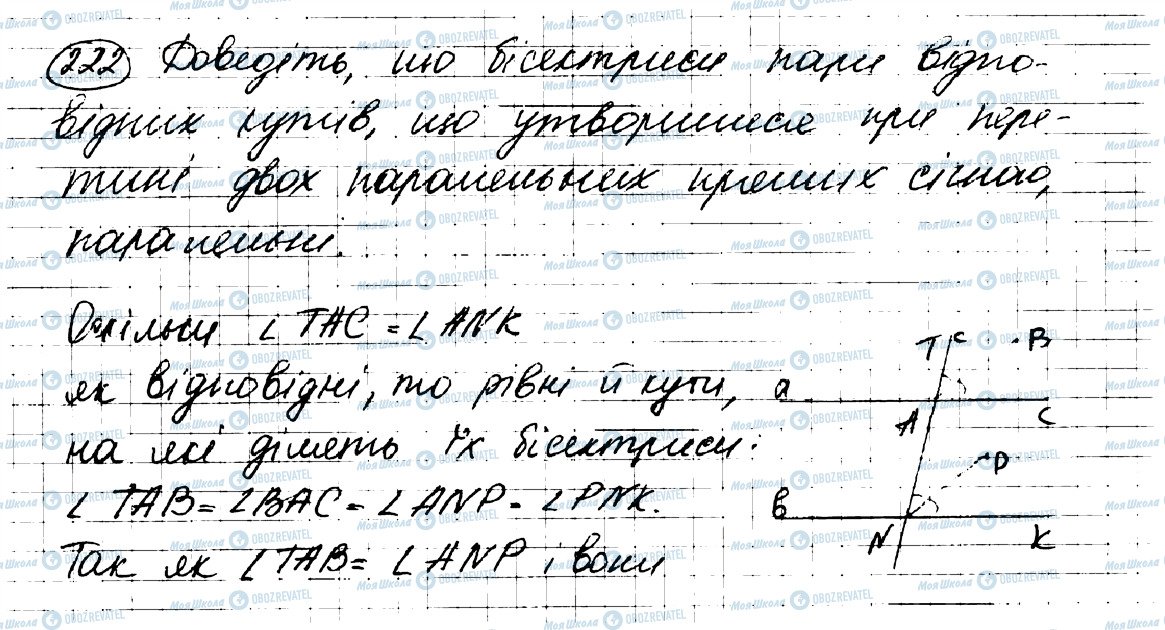 222 Доведіть, що бісектриси пари відпо-
відних кутів, що утворилися при пере-
тині двох паралельних прямих січною,
паралельні.
Оскільки ∠TAC = ∠ANK
як відповідні, то рівні й кути,
на які ділять їх бісектриси:
∠TAB = ∠BAC = ∠ANP = ∠PNK.
Так як ∠TAB = ∠ANP і вони
T c B
a A C
P
в N K
МояШкола OBOZREVATEL